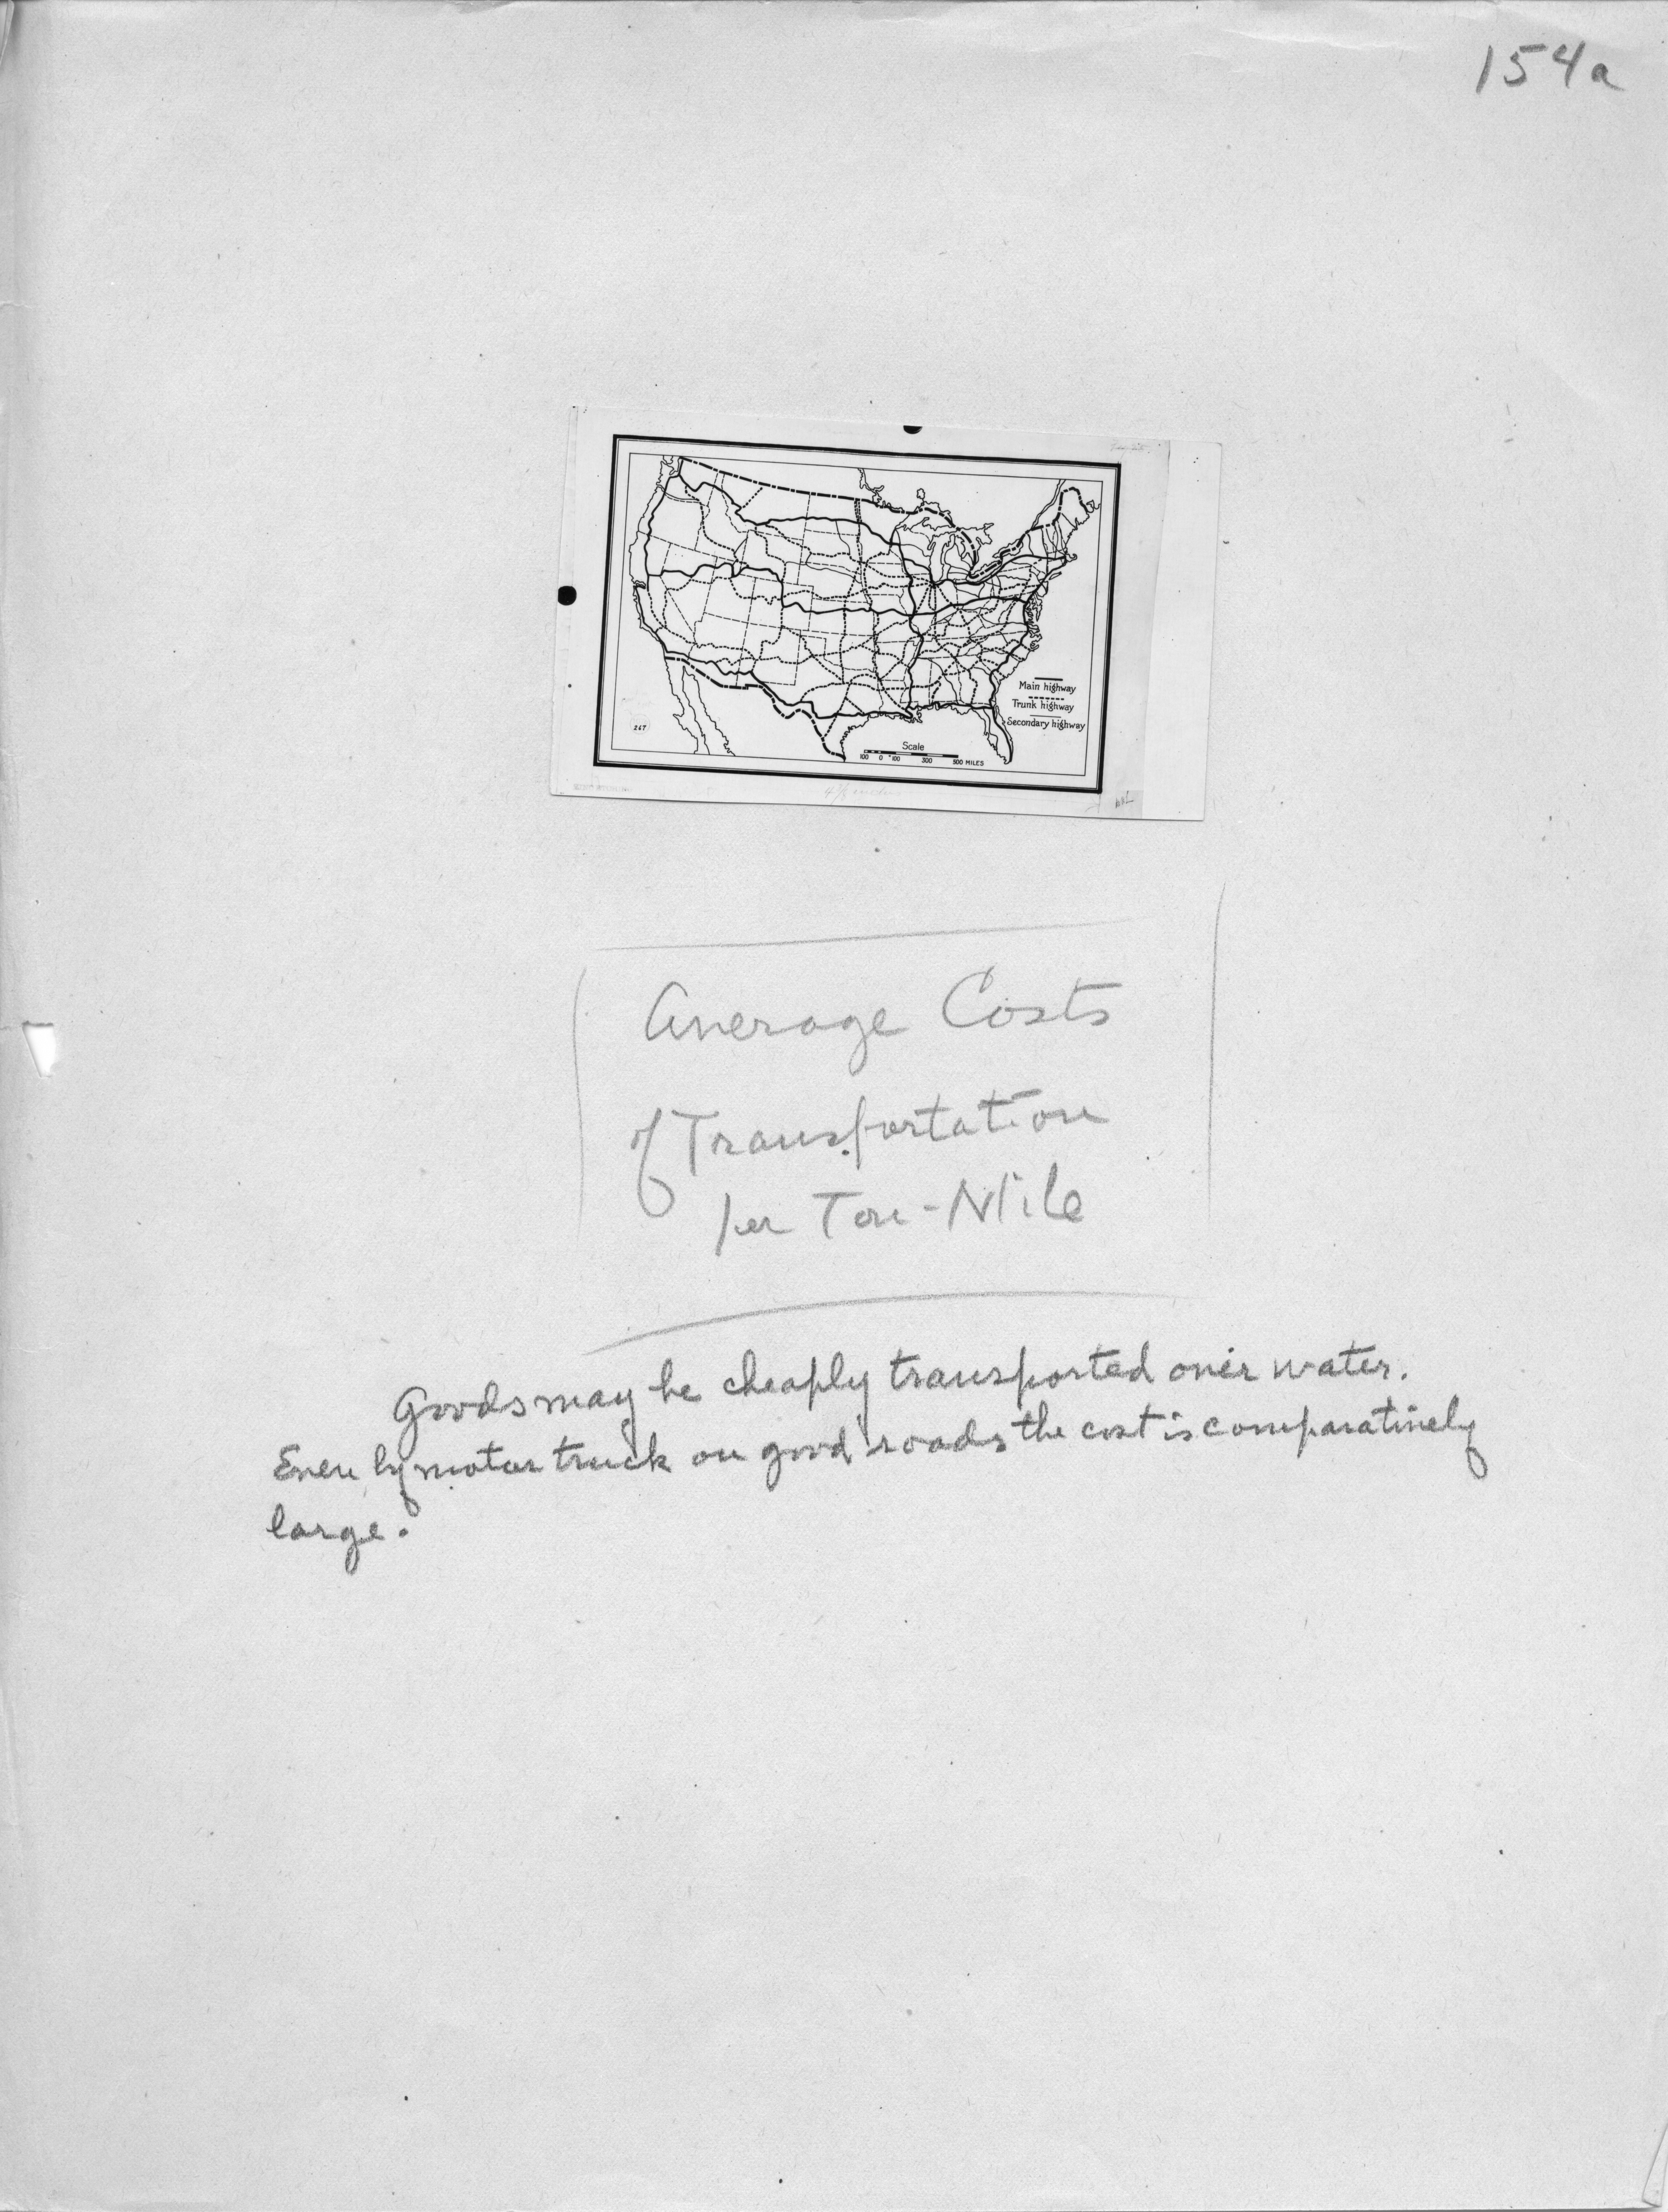 154a
Main highway
Trunk highway
Secondary highway
267
Scale
100 0 100 300 500 MILES
Average Costs
of Transportation
per Ton-Mile
Goods may be cheaply transported over water.
Even by motor truck on good roads the cost is comparatively
large.